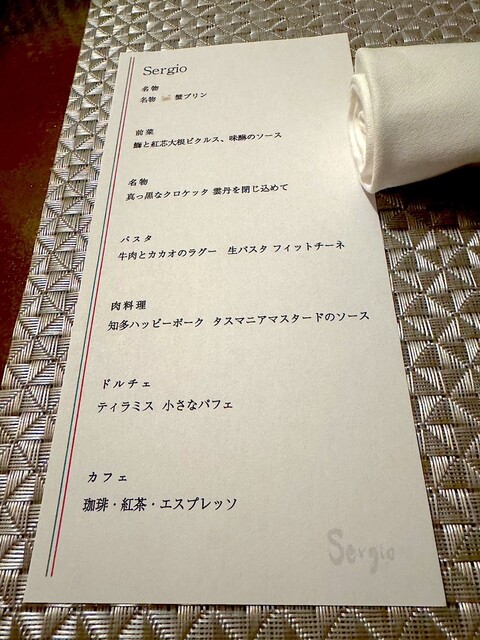 Sergio
名物
名物 蟹プリン
前菜
鰤と紅芯大根ピクルス、味醂のソース
名物
真っ黒なクロケッタ 雲丹を閉じ込めて
パスタ
牛肉とカカオのラグー 生パスタ フィットチーネ
肉料理
知多ハッピーポーク タスマニアマスタードのソース
ドルチェ
ティラミス 小さなパフェ
カフェ
珈琲・紅茶・エスプレッソ
Sergio